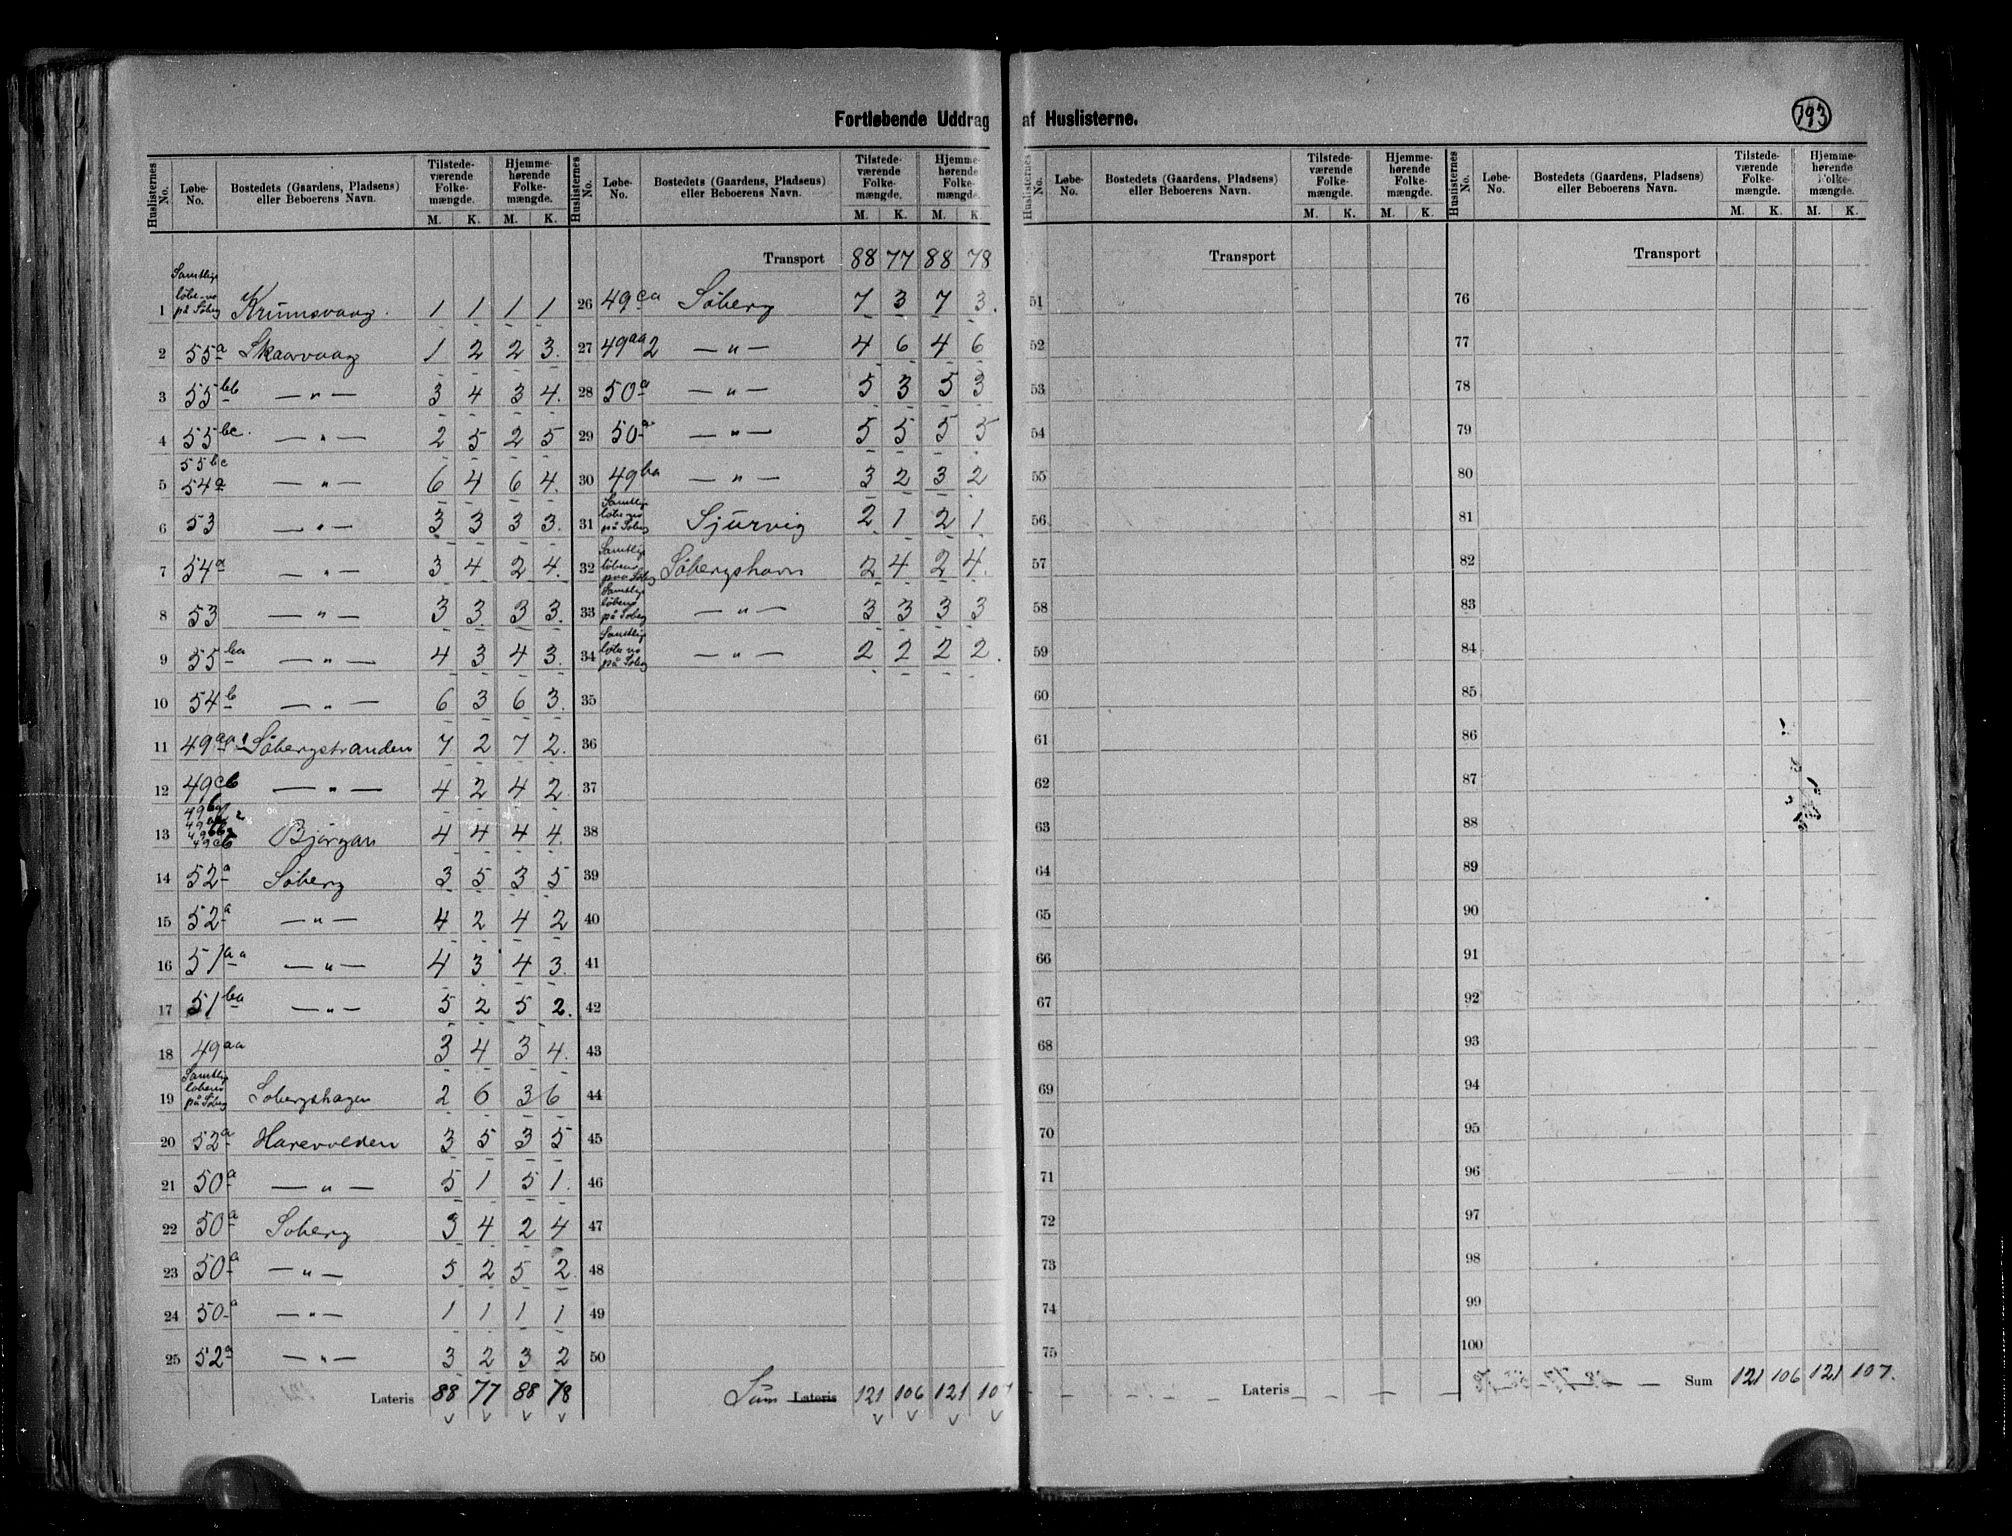 Fortløbende Uddrag af Huslisterne.
793
Huslisternes No. | Løbe-No. | Bostedets (Gaardens, Pladsens) eller Beboerens Navn. | Tilstedeværende Folkemængde. M. K. | Hjemmehørende Folkemængde. M. K.
1 Samtlige løbe no på Søberg Krumsvaag. 1 1 1 1
2 55a Skaarvaag 1 2 2 3.
3 55bb — " — 3 4 3 4.
4 55bc. — " — 2 5 2 5
5 55bc 54a — " — 6 4 6 4.
6 53 — " — 3 3 3 3.
7 54a — " — 3 4 2 4.
8 53 — " — 3 3 3 3.
9 55ba — " — 4 3 4 3.
10 54b — " — 6 3 6 3.
11 49aa1 Søbergstranden 7 2 7 2.
12 49cb — " — 4 2 4 2.
13 49cb Bjørgan 4 4 4 4.
14 52a Søberg 3 5 3 5
15 52a — " — 4 2 4 2
16 51aa — " — 4 3 4 3.
17 51ba — " — 5 2 5 2.
18 49aa 3 4 3 4.
19 Samtlig løbeno på Søberg Søbergshagen 2 6 3 6
20 52a Harevolden 3 5 3 5
21 50a — " — 5 1 5 1.
22 50a Søberg 3 4 2 4
23 50a — " — 5 2 5 2.
24 50a — " — 1 1 1 1
25 52a — " — 3 2 3 2
Lateris 88 77 88 78
Huslisternes No. | Løbe-No. | Bostedets (Gaardens, Pladsens) eller Beboerens Navn. | Tilstedeværende Folkemængde. M. K. | Hjemmehørende Folkemængde. M. K.
Transport 88 77 88 78
26 49ca Søberg 7 3 7 3.
27 49aa2 — " — 4 6 4 6
28 50a — " — 5 3 5 3
29 50a — " — 5 5 5 5
30 49ba — " — 3 2 3 2
31 Samtlig løbe no på Søberg Sjurvig 2 1 2 1
32 Samtlig løbeno paa Søberg Søbergshavn 2 4 2 4.
33 Samtlige løbeno på Søberg — " — 3 3 3 3
34 Samtlig løbe no på Søberg — " — 2 2 2 2.
35
36
37
38
39
40
41
42
43
44
45
46
47
48
49
50
Sum Lateris 121 106 121 107
Huslisternes No. | Løbe-No. | Bostedets (Gaardens, Pladsens) eller Beboerens Navn. | Tilstedeværende Folkemængde. M. K. | Hjemmehørende Folkemængde. M. K.
Transport
51
52
53
54
55
56
57
58
59
60
61
62
63
64
65
66
67
68
69
70
71
72
73
74
75
Lateris
Huslisternes No. | Løbe-No. | Bostedets (Gaardens, Pladsens) eller Beboerens Navn. | Tilstedeværende Folkemængde. M. K. | Hjemmehørende Folkemængde. M. K.
Transport
76
77
78
79
80
81
82
83
84
85
86
87
88
89
90
91
92
93
94
95
96
97
98
99
100
Sum 121 106 121 107.